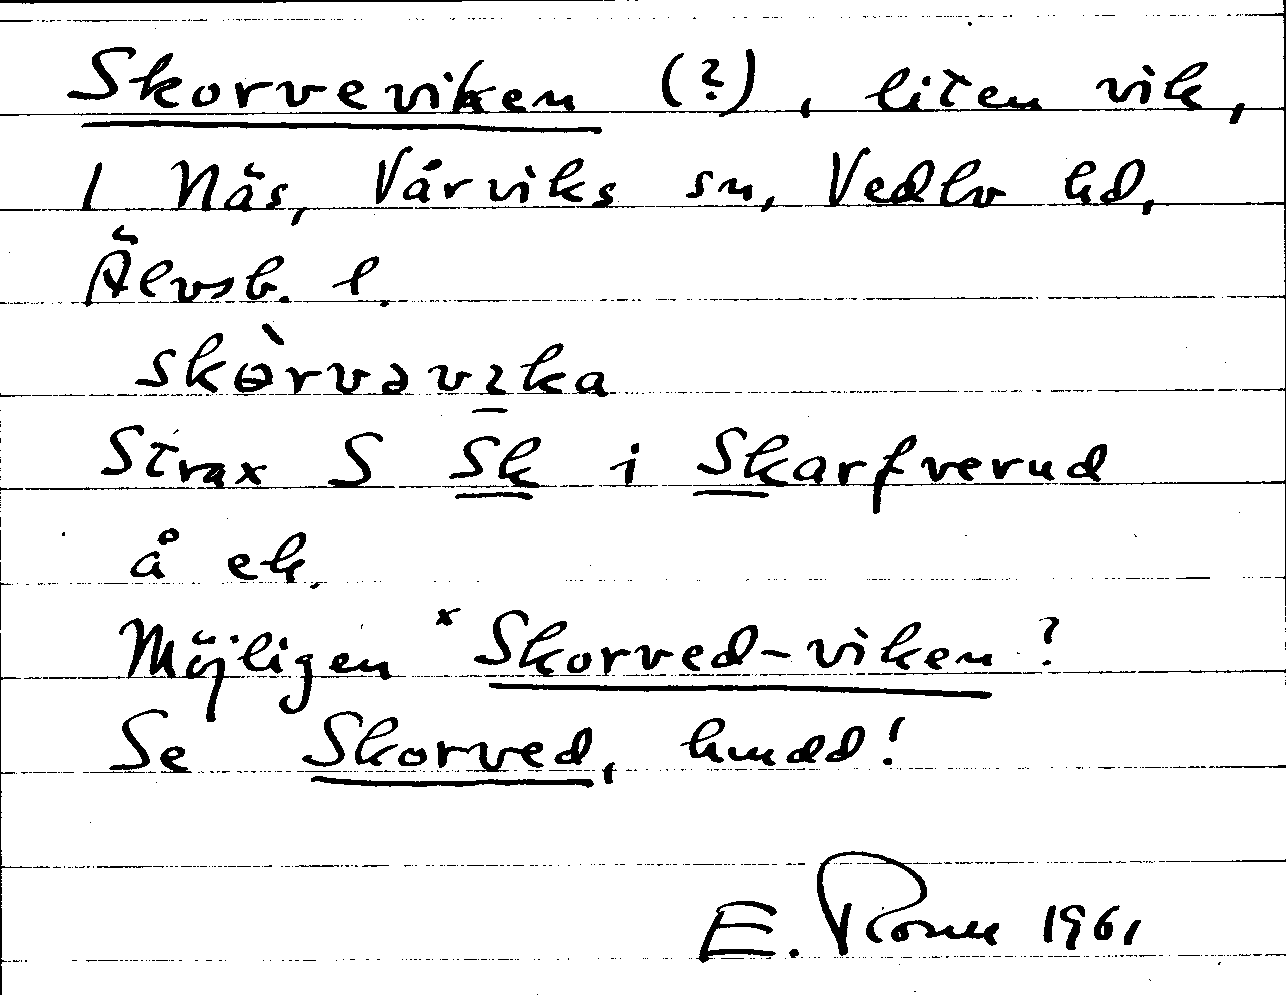 Skorveviken (?), liten vik,
1 Näs, Vårviks sn, Vedbo hd,
Älvsb. l.
skòrvəvika
Strax S Sk i Skarfverud
å ek.
Möjligen *Skorved-viken?
Se Skorved, hudd!
E. 1961